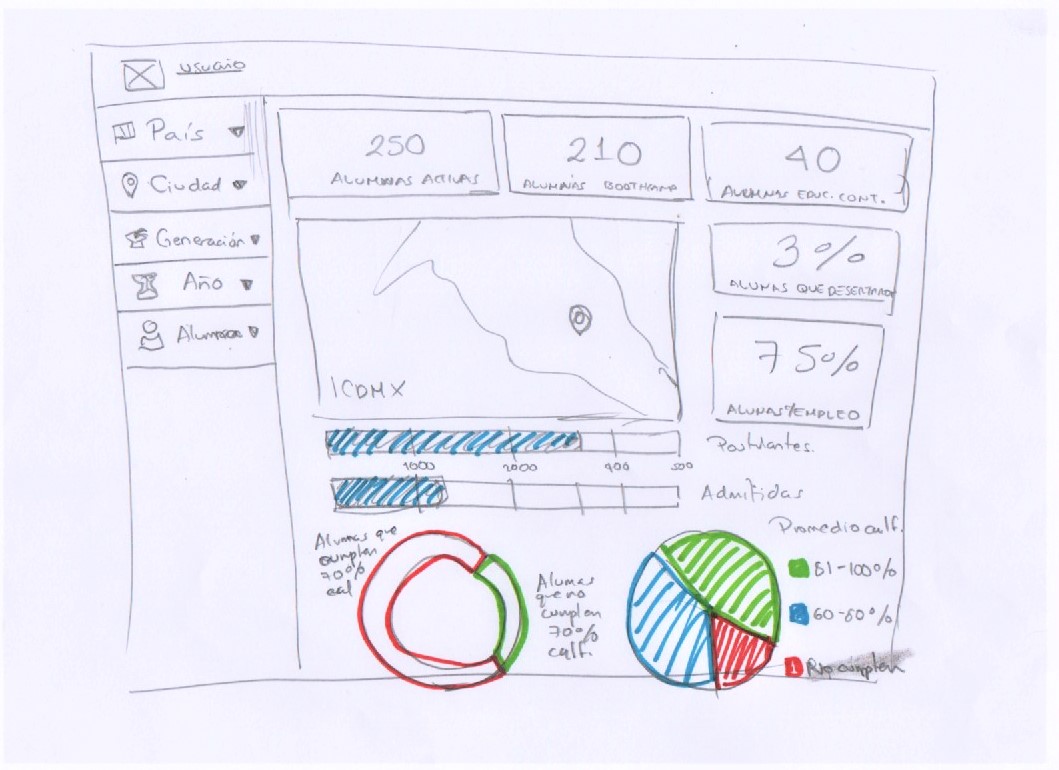 usuario
País
Ciudad
Generación
Año
Alumnas
250
ALUMNAS ACTIVAS
210
ALUMNAS BOOTCAMP
40
ALUMNAS EDUC. CONT.
3%
ALUMAS QUE DESERTARON
75%
ALUMAS/EMPLEO
CDMX
Postulantes.
1000 2000 400 500
Admitidas
Alumas que
cumplen
70%
cal
Alumas
que no
cumplen
70%
calf.
Promedio calf.
81-100%
60-80%
cumplen